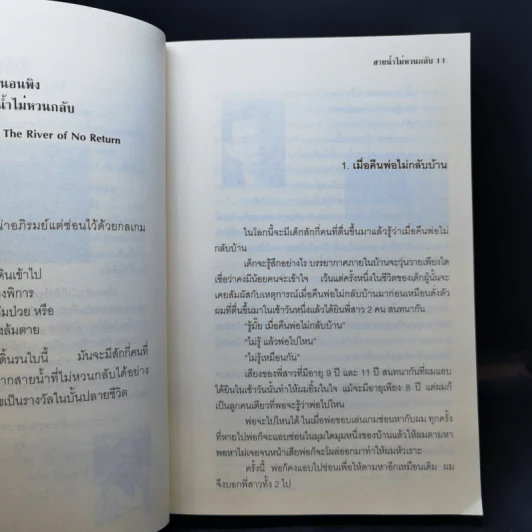 นอนพิง
น้ำไม่หวนกลับ
The River of No Return
น่าอภิรมย์แต่ซ่อนไว้ด้วยกลเกม
ดินเข้าไป
งพิการ
ป่วย หรือ
งล้มตาย
ดิ้นรนใบนี้ มันจะมีสักกี่คนที่
ากสายน้ำที่ไม่หวนกลับได้อย่าง
เป็นรางวัลในบั้นปลายชีวิต
สายน้ำไม่หวนกลับ 11
1. เมื่อคืนพ่อไม่กลับบ้าน
ในโลกนี้จะมีเด็กสักกี่คนที่ตื่นขึ้นมาแล้วรู้ว่าเมื่อคืนพ่อไม่
กลับบ้าน
เด็กจะรู้สึกอย่างไร บรรยากาศภายในบ้านจะวุ่นวายเพียงใด
เชื่อว่าคงมีน้อยคนจะเข้าใจ เว้นแต่ครั้งหนึ่งในชีวิตของเด็กผู้นั้นจะ
เคยสัมผัสกับเหตุการณ์เมื่อคืนพ่อไม่กลับบ้านมาก่อนเหมือนดั่งตัว
ผมที่ตื่นขึ้นมาในเช้าวันหนึ่งแล้วได้ยินพี่สาว 2 คน สนทนากัน
"รู้มั้ย เมื่อคืนพ่อไม่กลับบ้าน"
"ไม่รู้ แล้วพ่อไปไหน"
"ไม่รู้เหมือนกัน"
เสียงของพี่สาวที่มีอายุ 9 ปี และ 11 ปี สนทนากันที่ผมแอบ
ได้ยินในเช้าวันนั้นทำให้ผมยิ้มในใจ แม้จะมีอายุเพียง 8 ปี แต่ผมก็
เป็นลูกคนเดียวที่พอจะรู้ว่าพ่อไปไหน
พ่อจะไปไหนได้ ในเมื่อพ่อชอบเล่นเกมซ่อนหากับผม ทุกครั้ง
ที่หายไปพ่อก็จะแอบซ่อนในมุมใดมุมหนึ่งของบ้านแล้วให้ผมตามหา
พอหาไม่เจอจนหน้าเสียพ่อก็จะโผล่ออกมาทำให้ผมหัวเราะ
ครั้งนี้ พ่อก็คงแอบไปซ่อนเพื่อให้ตามหาอีกเหมือนเดิม ผม
จึงบอกพี่สาวทั้ง 2 ไป